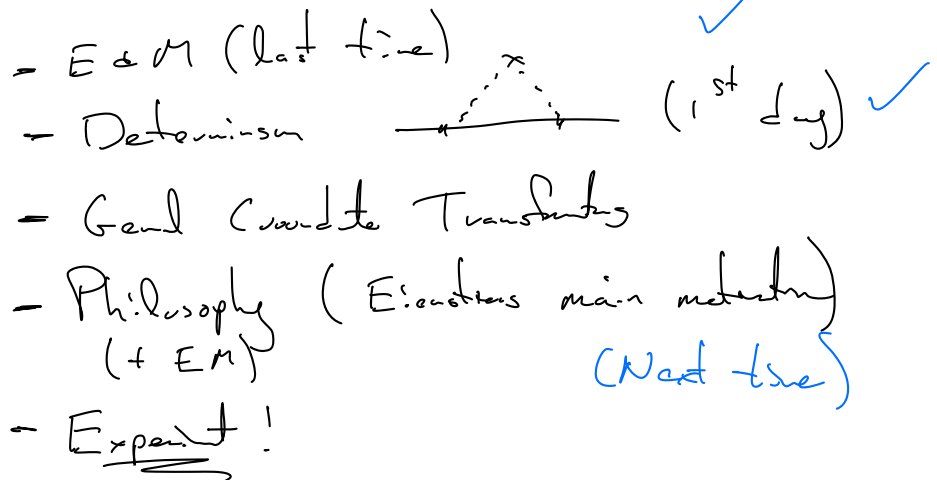 - E & M (last time)
- Determinism (1st day)
- Genral Coordinate Transformtns
- Philosophy (Einsteins main motivation)
(+ EM) (Next time)
- Experimt!